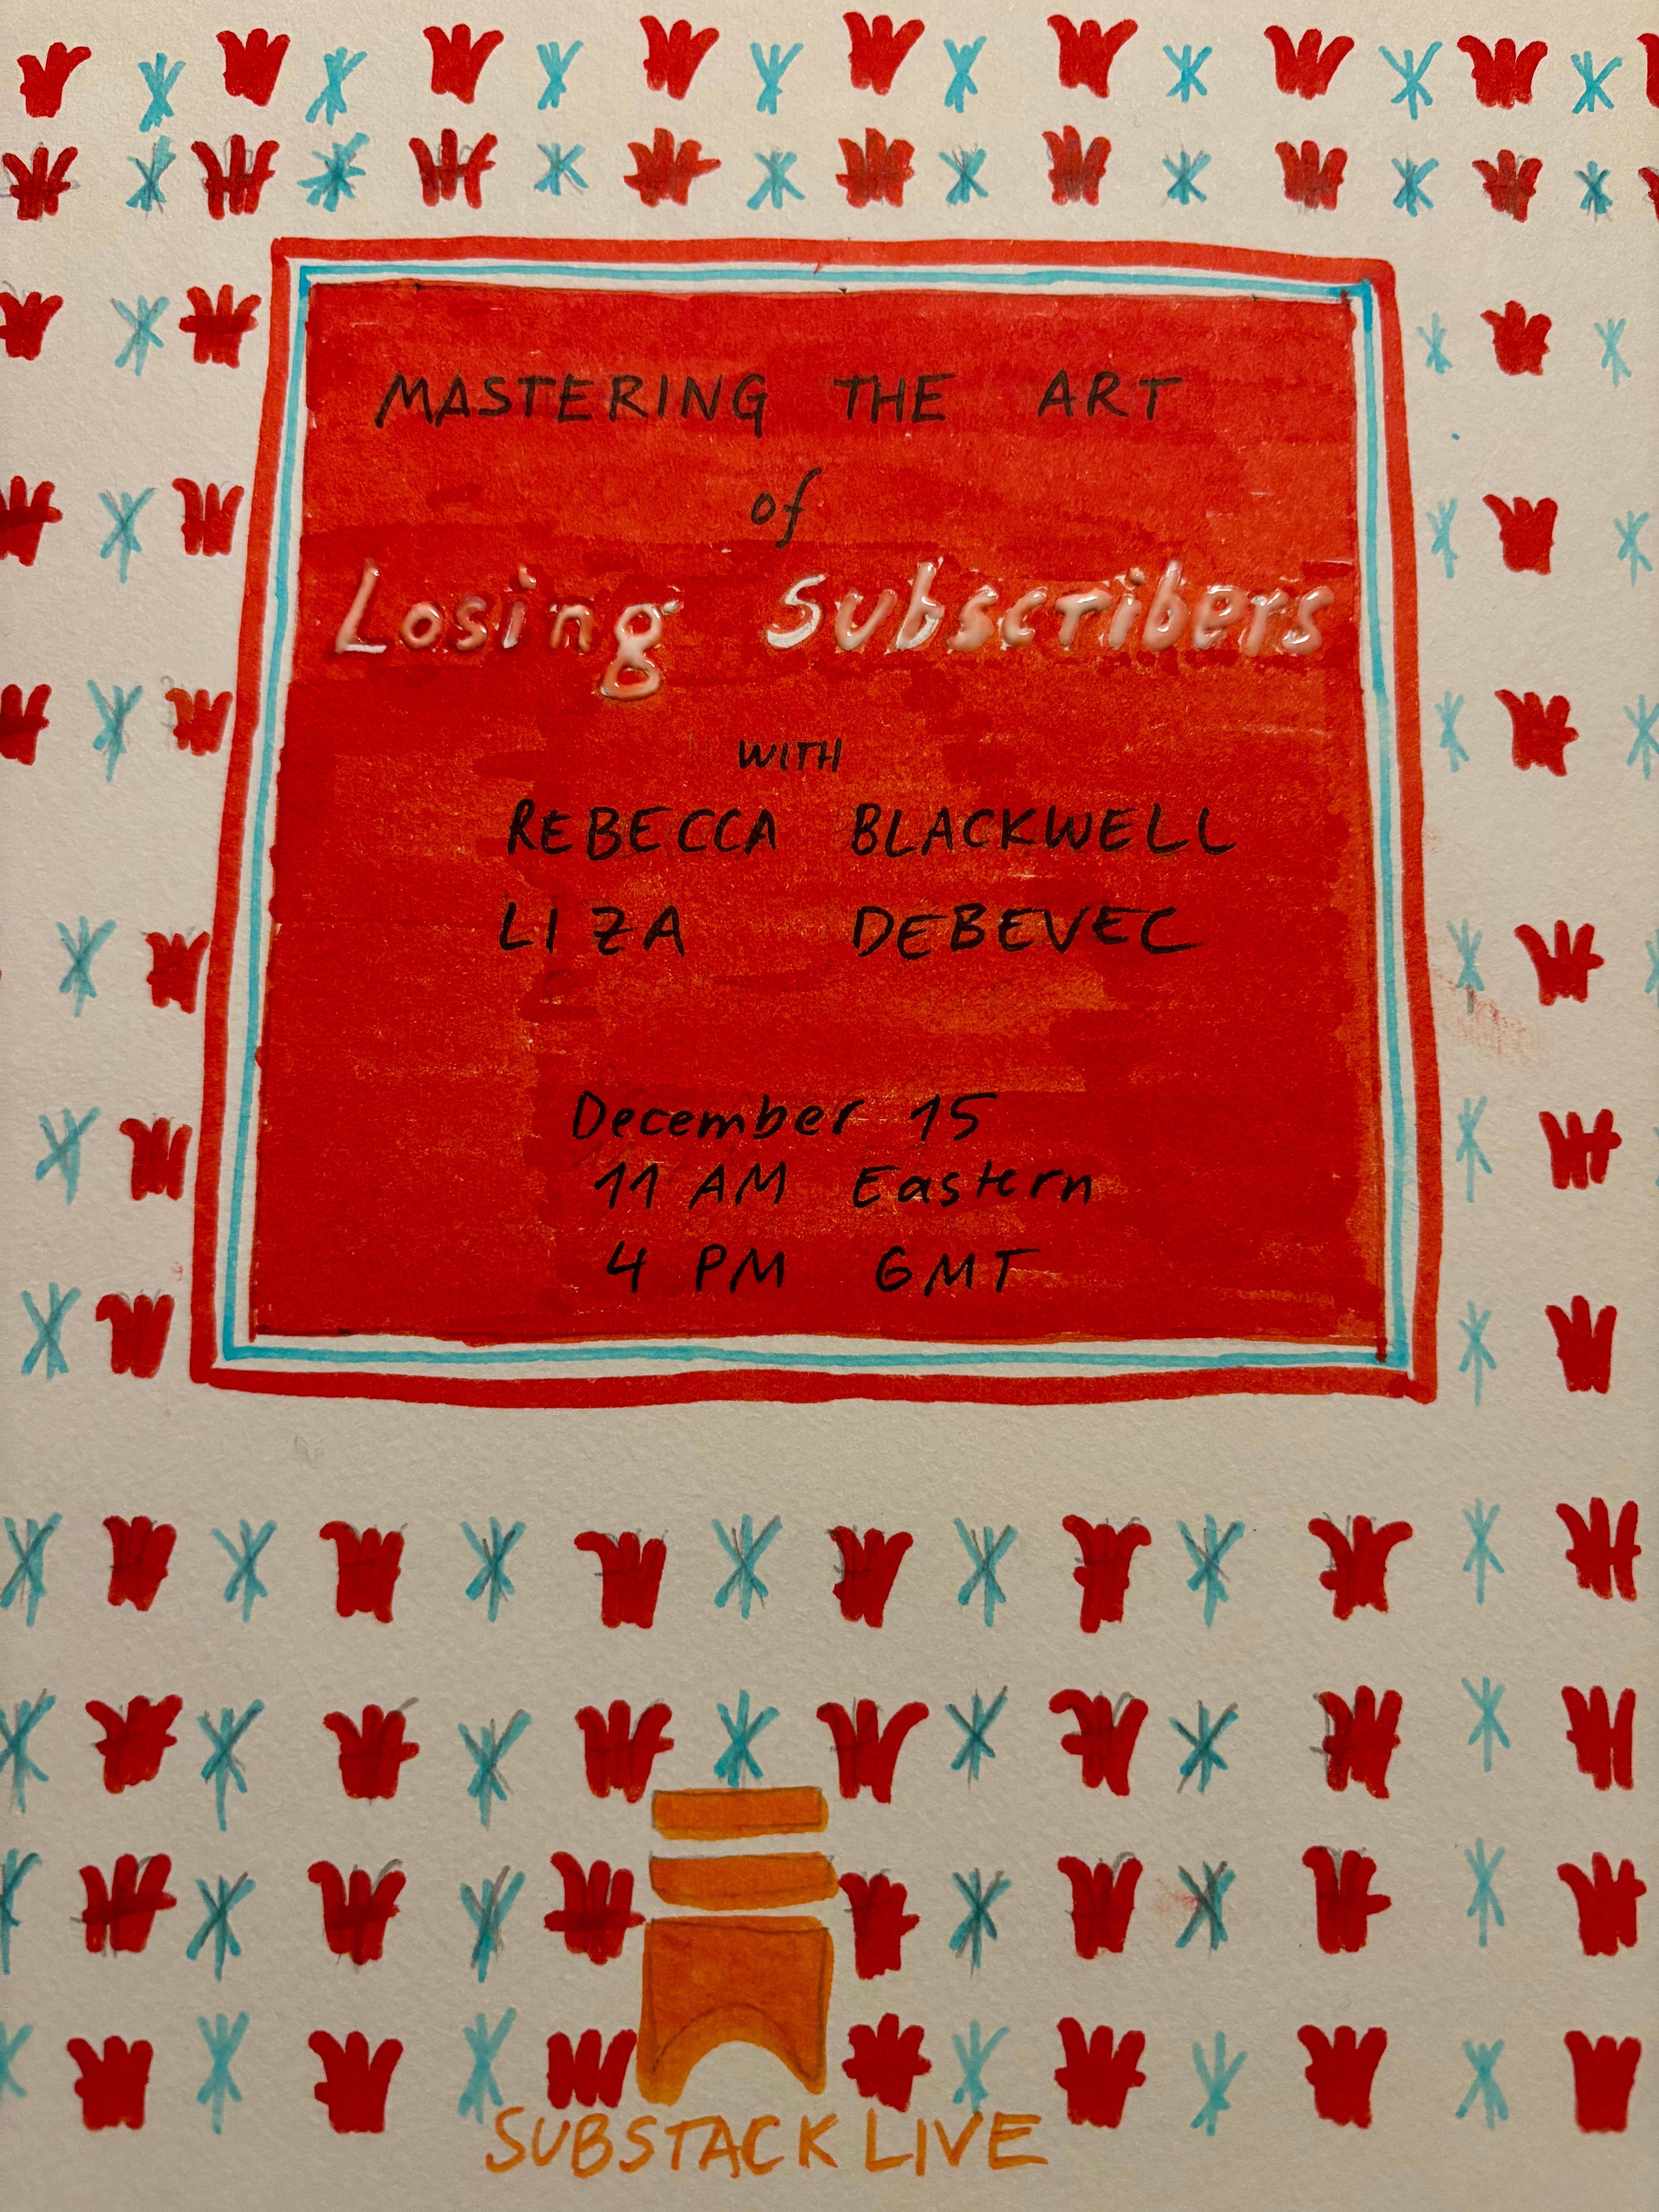 MASTERING THE ART
of
Losing Subscribers
WITH
REBECCA BLACKWELL
LIZA DEBEVEC
December 15
11 AM Eastern
4 PM GMT
SUBSTACK LIVE